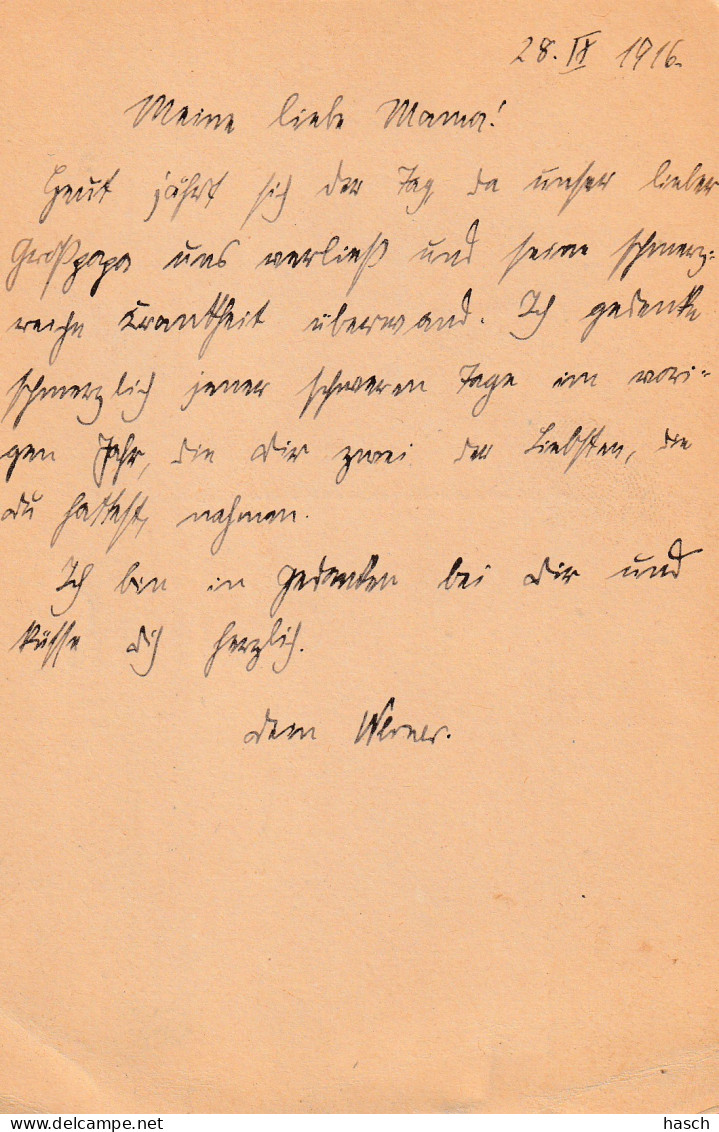 28. IX 1916.
Meine liebe Mama!
Heut jährt sich der Tag, da unser lieber
Großpapa uns verließ und seine schmerz-
reiche Krankheit überwand. Ich gedenke
schmerzlich jener schweren Tage im vori-
gen Jahr, die Dir zwei der Liebsten, die
Du hattest, nahmen.
Ich bin in Gedanken bei Dir und
küsse Dich herzlich.
Dein Werner.
hasch
Delcampe.net